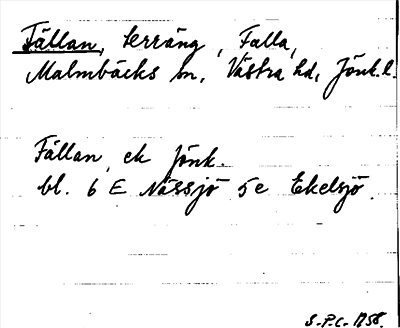 Fällan, terräng, Falla,
Malmbäcks sn, Västra hd, Jönk. l.
Fällan, ek Jönk.
bl. 6 E Nässjö 5e Ekelsjö.
S-P.C. 1958.